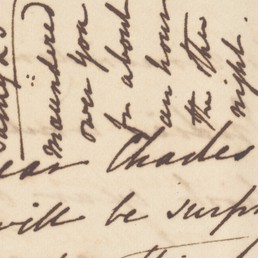 maundered
over you
for about
an hour
the other
night.
ear Charles
will be surpr